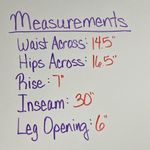 Measurements
Waist Across: 14.5"
Hips Across: 16.5"
Rise: 7"
Inseam: 30"
Leg Opening: 6"